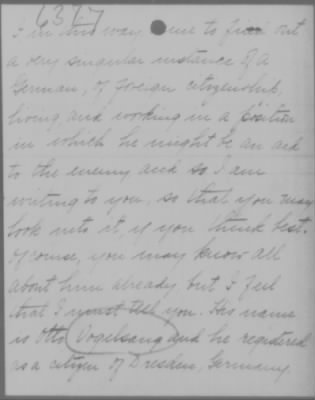 6377
I in this way came to find out
a very singular instance of a
German, of foreign citizenship,
living and working in a position
in which he might be an aid
to the enemy and so I am
writing to you, so that you may
look into it, if you think best.
Of course, you may know all
about him already but I feel
that I must tell you. His name
is Otto Vogelsang and he registered
as a citizen of Dresden, Germany